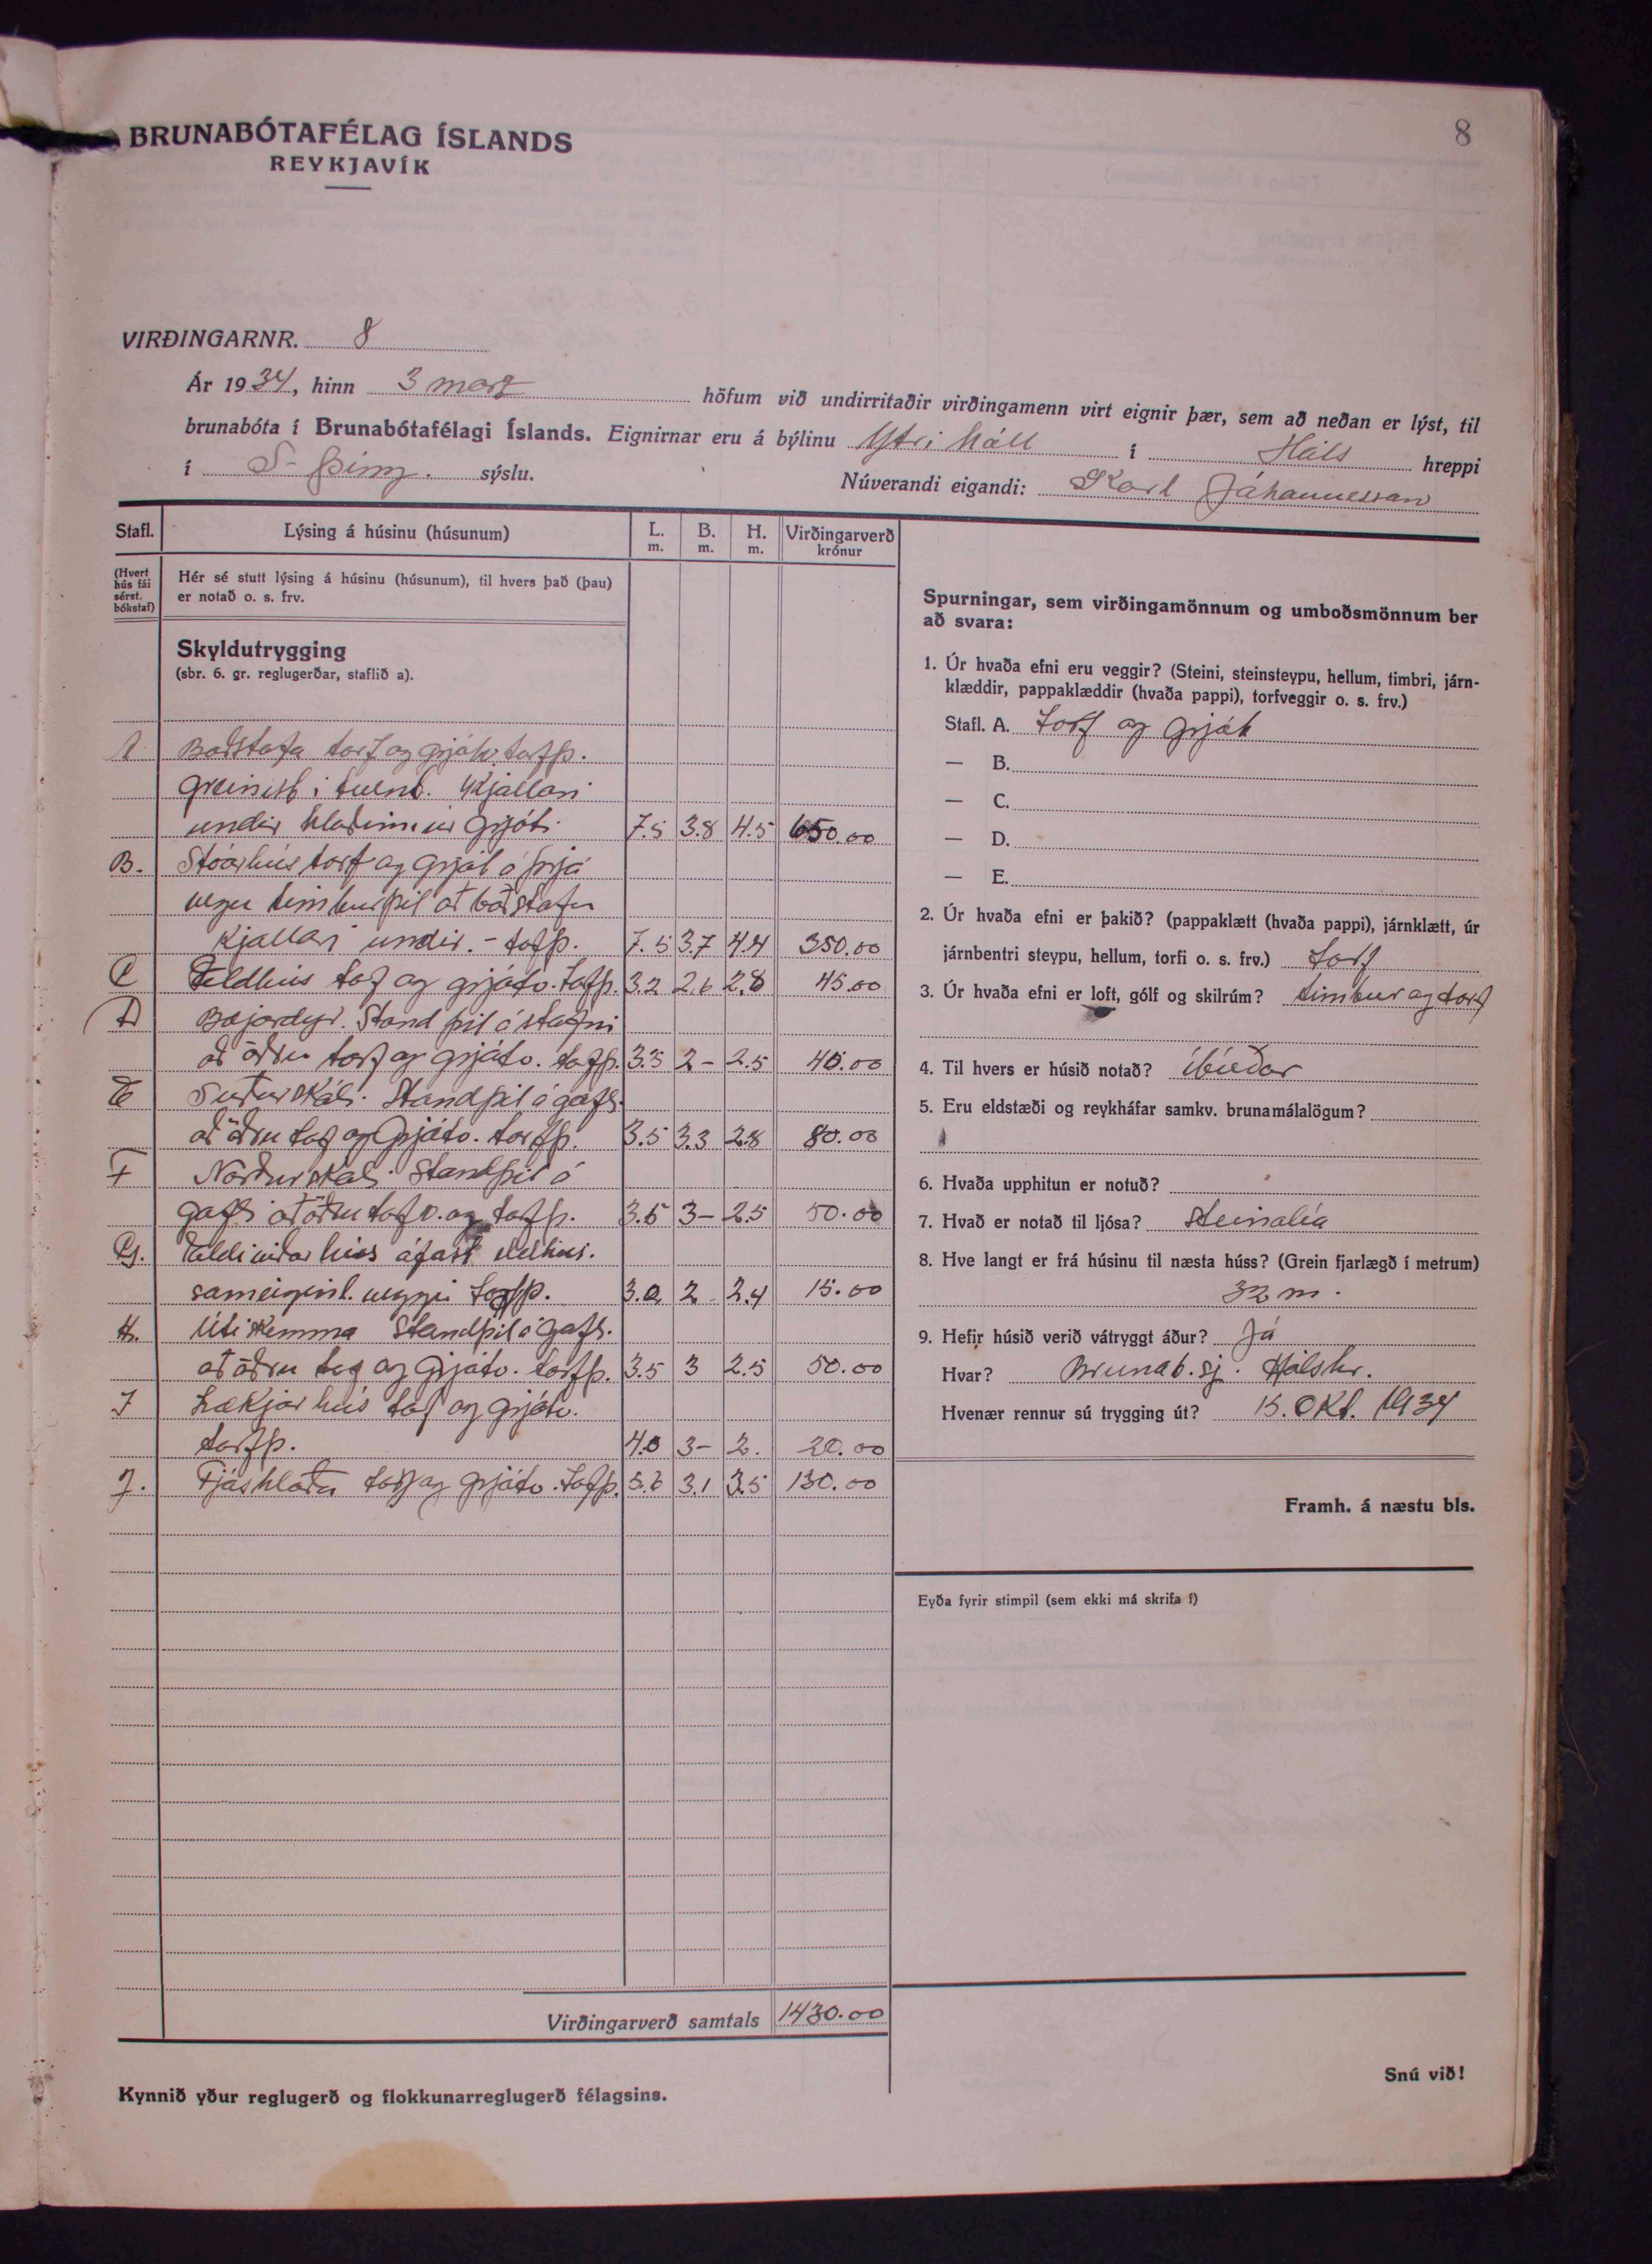 8
BRUNABÓTAFÉLAG ÍSLANDS
REYKJAVÍK
VIRÐINGARNR. 8
Ár 1934, hinn 3 marz höfum við undirritaðir virðingamenn virt eignir þær, sem að neðan er lýst, til
brunabóta í Brunabótafélagi Íslands. Eignirnar eru á býlinu Ytri háll í Háls hreppi
í S-þing. sýslu. Núverandi eigandi: Karl Jóhannesson
Stafl. Lýsing á húsinu (húsunum) L. m. B. m. H. m. Virðingarverð krónur
(Hvert hús fái sérst. bókstaf)
Hér sé stutt lýsing á húsinu (húsunum), til hvers það (þau)
er notað o. s. frv.
Skyldutrygging
(sbr. 6. gr. reglugerðar, staflið a).
A Baðstofa torf og grjótv. torfþ.
greinist í tvent. Kjallari
undir hlaðinn úr grjóti 7.5 3.8 4.5 650.00
B. Stóarhús torf og grjót á þrjá
vegu timburþil að baðstofu
Kjallari undir. - tofþ. 7.5 3.7 4.4 350.00
C Eldhús tof og grjótv. tofþ. 3.2 2.6 2.8 45.00
D Bæjardyr. Stand þil á stafni
að öðru torf og grjótv. tofþ. 3.5 2- 2.5 40.00
E Suðurskáli. Standþil á gafli.
að öðru tof og grjótv. torfþ. 3.5 3.3 2.8 80.00
F Norðurskáli Standþil á
gafli að öðru tofv. og tofþ. 3.5 3- 2.5 50.00
G. Eldiviðarhús áfast eldhúsi.
sameiginl. veggi tofþ. 3.0 2 2.4 15.00
H. Útiskemma Standþil á gafli.
að öðru tof og grjótv. torfþ. 3.5 3 2.5 50.00
I Lækjarhús tof og grjótv.
torfþ. 4.0 3- 2. 20.00
J. Fjáshlaða torf og grjótv. tofþ. 5.6 3.1 3.5 130.00
Virðingarverð samtals 1430.00
Kynnið yður reglugerð og flokkunarreglugerð félagsins.
Spurningar, sem virðingamönnum og umboðsmönnum ber
að svara:
1. Úr hvaða efni eru veggir? (Steini, steinsteypu, hellum, timbri, járn-
klæddir, pappaklæddir (hvaða pappi), torfveggir o. s. frv.)
Stafl. A. Torf og grjót
— B.
— C.
— D.
— E.
2. Úr hvaða efni er þakið? (pappaklætt (hvaða pappi), járnklætt, úr
járnbentri steypu, hellum, torfi o. s. frv.) torf
3. Úr hvaða efni er loft, gólf og skilrúm? timbur og torf
4. Til hvers er húsið notað? íbúðar
5. Eru eldstæði og reykháfar samkv. brunamálalögum?
6. Hvaða upphitun er notuð?
7. Hvað er notað til ljósa? steinalía
8. Hve langt er frá húsinu til næsta húss? (Grein fjarlægð í metrum)
32 m.
9. Hefir húsið verið vátryggt áður? Já
Hvar? Brunab. sj. Hálshr.
Hvenær rennur sú trygging út? 15. okt. 1934
Framh. á næstu bls.
Eyða fyrir stimpil (sem ekki má skrifa í)
Snú við!